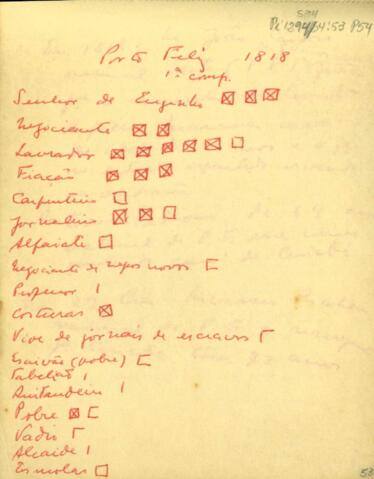 Pi 1294/34:53 P54
Porto Feliz 1818
1ª comp.
Senhor de Engenho
Negociante
Lavrador
Fiação
Carpinteiro
Jornaleiro
Alfaiate
Negociante de negros novos
Professor
Costuras
Vive de jornais de escravos
Escrivão (pobre)
Tabelião
Quitandeira
Pobre
Vadio
Alcaide
Esmolas
53